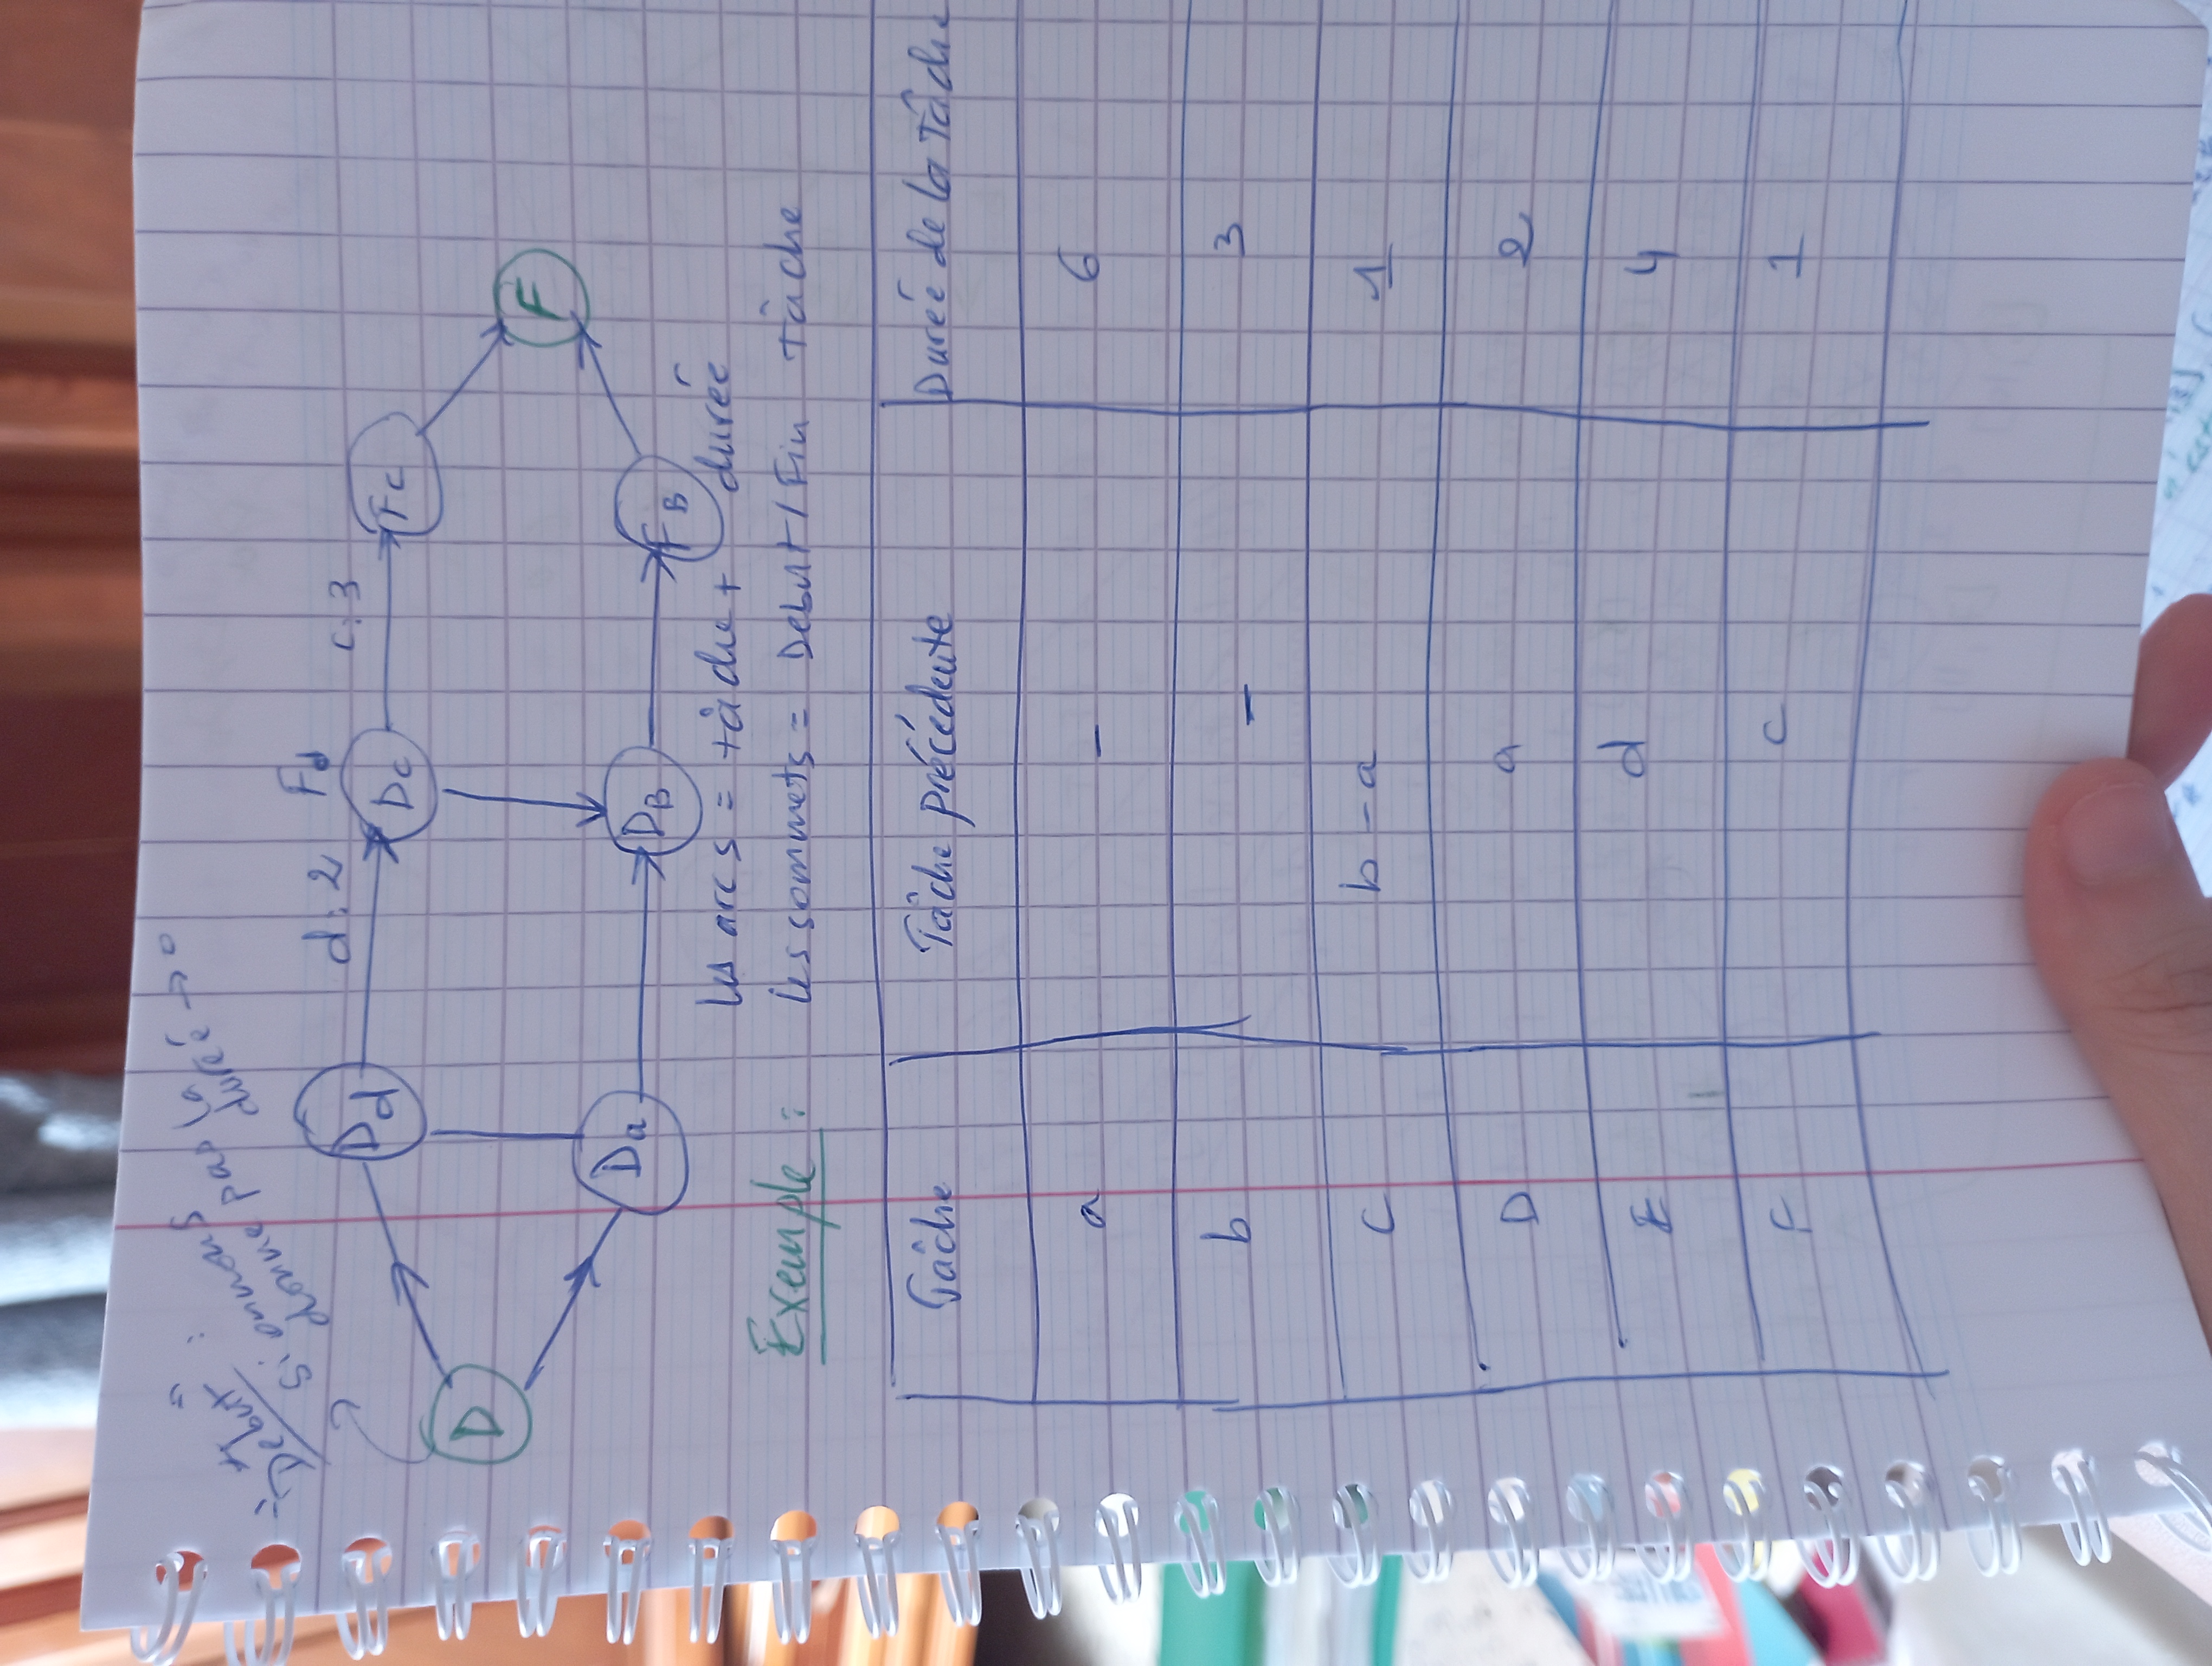 "Début" :
Si on nous
donne pas la
durée → 0
d: 2
Fd
c: 3
Dd
Dc
Fc
D
F
Da
DB
FB
les arcs = tâche + durée
Exemple :
les sommets = Debut / Fin tâche
Tâche Tâche précédente Durée de la Tâche
a - 6
b - 3
C b - a 1
D a 2
E d 4
F c 1